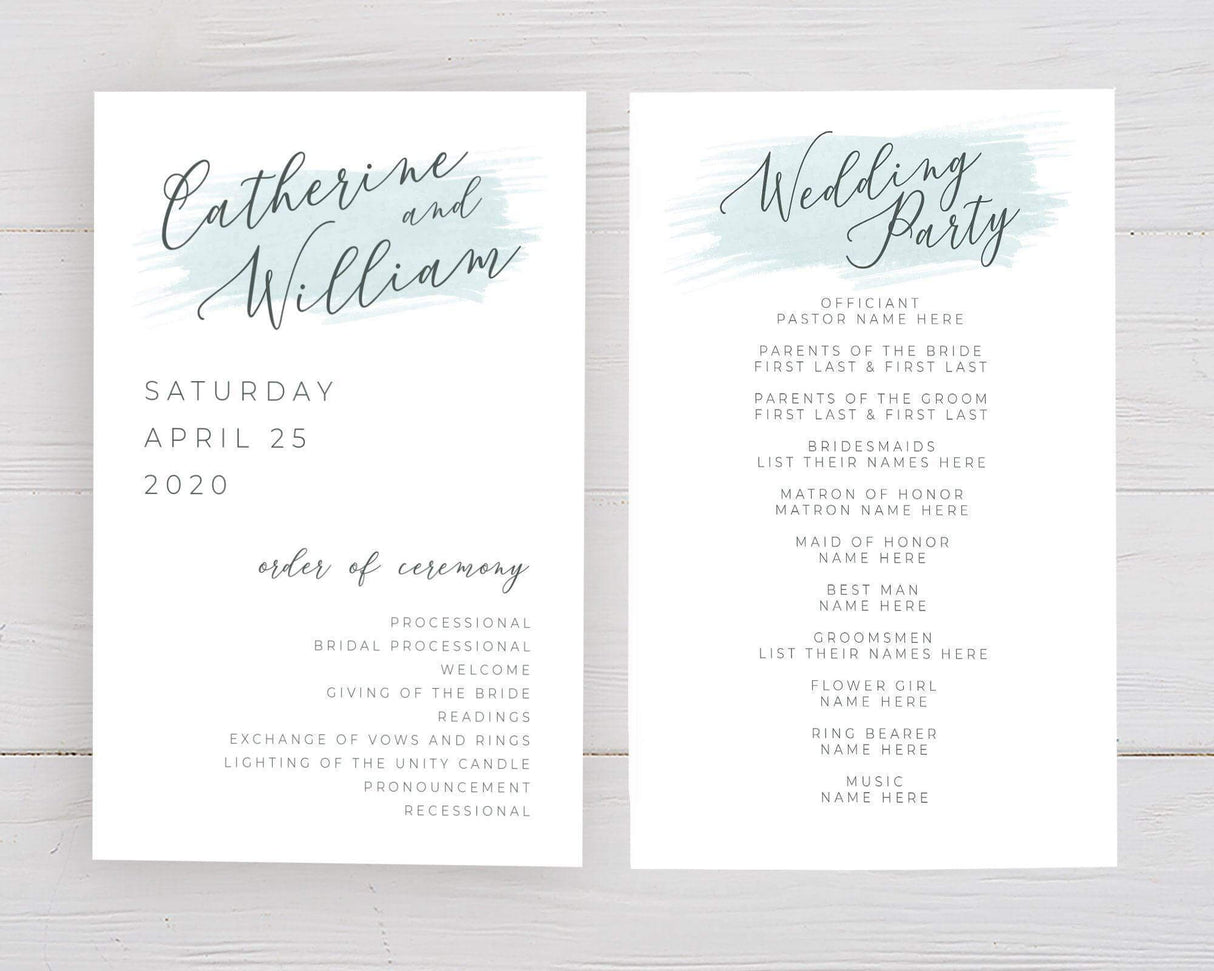 Catherine
and
William
SATURDAY
APRIL 25
2020
order of ceremony
PROCESSIONAL
BRIDAL PROCESSIONAL
WELCOME
GIVING OF THE BRIDE
READINGS
EXCHANGE OF VOWS AND RINGS
LIGHTING OF THE UNITY CANDLE
PRONOUNCEMENT
RECESSIONAL
Wedding
Party
OFFICIANT
PASTOR NAME HERE
PARENTS OF THE BRIDE
FIRST LAST & FIRST LAST
PARENTS OF THE GROOM
FIRST LAST & FIRST LAST
BRIDESMAIDS
LIST THEIR NAMES HERE
MATRON OF HONOR
MATRON NAME HERE
MAID OF HONOR
NAME HERE
BEST MAN
NAME HERE
GROOMSMEN
LIST THEIR NAMES HERE
FLOWER GIRL
NAME HERE
RING BEARER
NAME HERE
MUSIC
NAME HERE